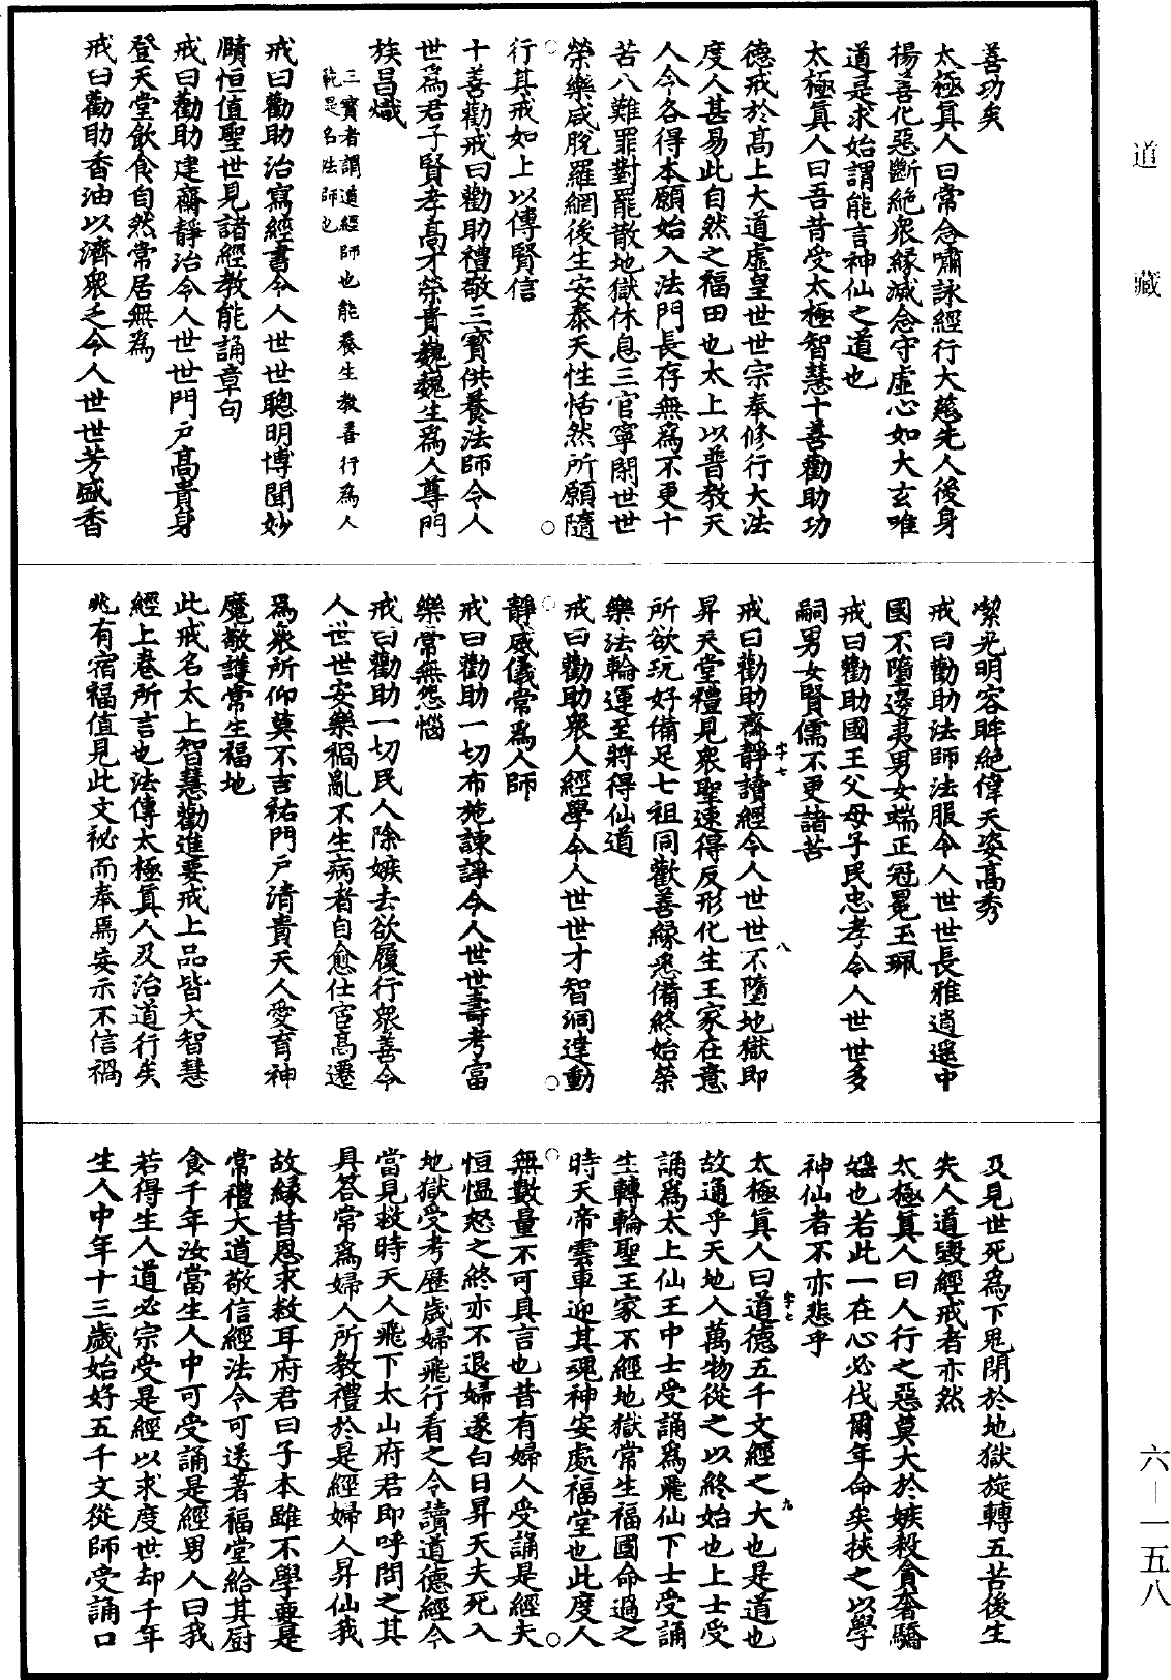 善功矣
太極真人曰常念嘯詠經行大慈先人後身
楊善化惡斷絕衆緣滅念守虛心如大玄唯
道是求始謂能言神仙之道也
太極真人曰吾昔受太極智慧十善勸助功
德戒於高上大道虛皇世世宗奉修行大法
度人甚易此自然之福田也太上以普教天
人令各得本願始入法門長存無爲不更十
苦八難罪對罷散地獄休息三官寧閑世世
榮樂咸脫羅網後生安泰天性恬然所願隨
行其戒如上以傳賢信
十善勸戒曰勸助禮敬三寶供養法師令人
世爲君子賢孝高才榮貴巍巍生爲人尊門
族昌熾
三寶者謂道經師也能養生教善行爲人
範是名法師也
戒曰勸助治寫經書令人世世聰明博聞妙
賾恒值聖世見諸經教能誦章句
戒曰勸助建齋靜治令人世世門戶高貴身
登天堂飲食自然常居無爲
戒曰勸助香油以濟衆乏令人世世芳盛香
潔光明容眸絕偉天姿高秀
戒曰勸助法師法服令人世世長雅逍遥中
國不墮邊夷男女端正冠冕玉珮
戒曰勸助國王父母子民忠孝令人世世多
嗣男女賢儒不更諸苦
字七
八
戒曰勸助齋靜讀經令人世世不墮地獄即
昇天堂禮見衆聖速得反形化生王家在意
所欲玩好備足七祖同歡善緣悉備終始榮
樂法輪運至將得仙道
戒曰勸助衆人經學令人世世才智洞達動
靜威儀常爲人師
戒曰勸助一切布施諫諍令人世世壽考富
樂常無怨惱
戒曰勸助一切民人除嫉去欲履行衆善令
人世世安樂禍亂不生病者自愈仕宦高遷
爲衆所仰莫不吉祐門戶清貴天人愛育神
魔敬護常生福地
此戒名太上智慧勸進要戒上品皆大智慧
經上卷所言也法傳太極真人及治道行矣
兆有宿福值見此文祕而奉焉妄示不信禍
及見世死爲下鬼閉於地獄旋轉五苦後生
失人道毀經戒者亦然
太極真人曰人行之惡莫大於嫉殺貪奢驕
婬也若此一在心必伐爾年命矣挾之以學
神仙者不亦悲乎
字七
九
太極真人曰道德五千文經之大也是道也
故通乎天地人萬物從之以終始也上士受
誦爲太上仙王中士受誦爲飛仙下士受誦
生轉輪聖王家不經地獄常生福國命過之
時天帝雲車迎其魂神安處福堂也此度人
無數量不可具言也昔有婦人受誦是經夫
恒愠怒之終亦不退婦遂白日昇天夫死入
地獄受考歷歲婦飛行看之令讀道德經令
當見救時天人飛下太山府君即呼問之其
具答常爲婦人所教禮於是經婦人昇仙我
故緣昔恩求救耳府君曰子本雖不學要是
常禮大道敬信經法令可送著福堂給其厨
食千年汝當生人中可受誦是經男人曰我
若得生人道必宗受是經以求度世却千年
生人中年十三歲始好五千文從師受誦口
道藏
六—一五八